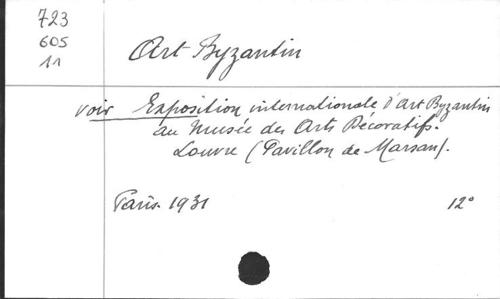 723
605
11
Art Byzantin
voir Exposition internationale d'Art Byzantin
au Musée des Arts Décoratifs.
Louvre (Pavillon de Marsan).
Paris. 1931 12°